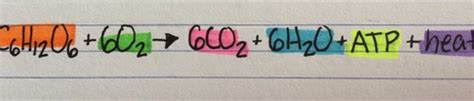 C₆H₁₂O₆ + 6O₂ → 6CO₂ + 6H₂O + ATP + heat